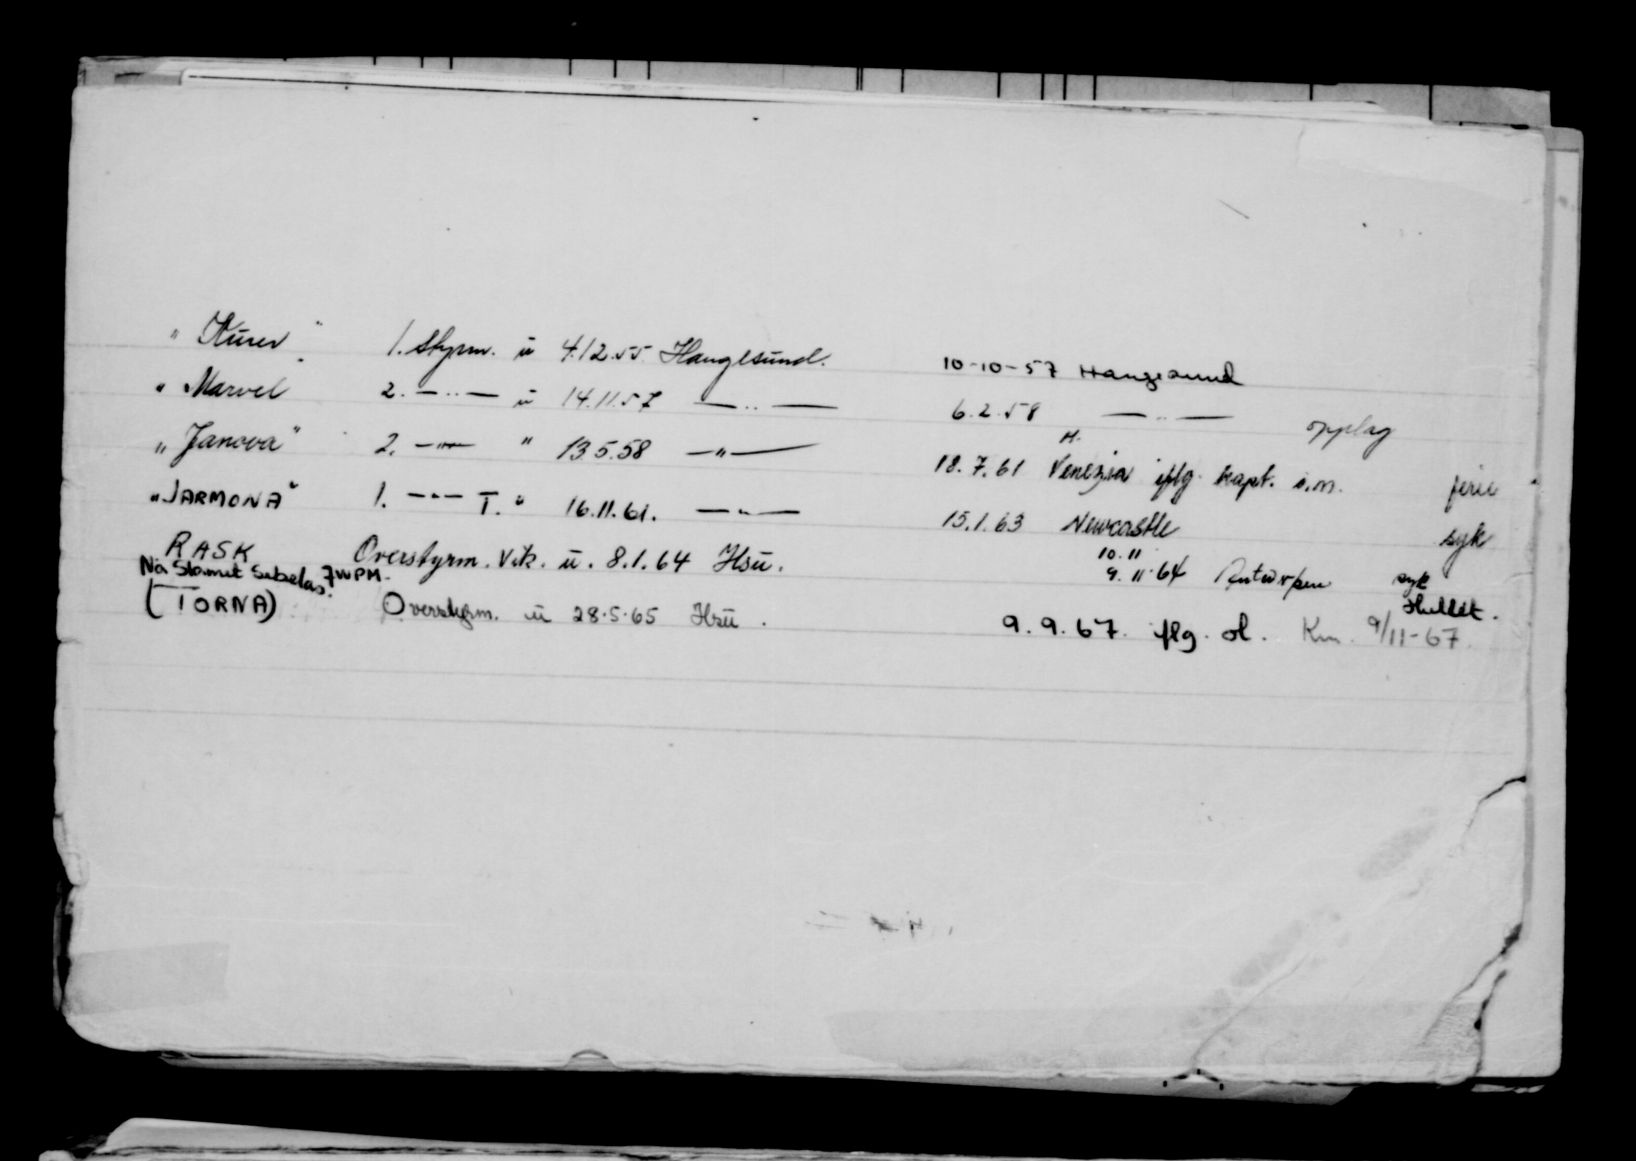 " Kurer " 1. Styrm. ū 4.12.55 Haugesund. 10-10-57 Haugesund
" Marvel " 2. — .. — ū 14.11.57 — .. — 6.2.58 — .. — opplag
" Janova " 2. — " — " 13.5.58 — " — 18.7.61 Venezia iflg. kapt. s.m. ferie
" JARMONA " 1. — " — T. " 16.11.61. — " — 15.1.63 Newcastle syk
RASK Overstyrm. Vik. ū. 8.1.64 Hsū. 10.11 9.11.64 Antwerpen syk
Nå 7WPM.
(TORNA) Overstyrm. ū 28.5.65 Hsū. 9.9.67. iflg. ol. Km. 9/11-67